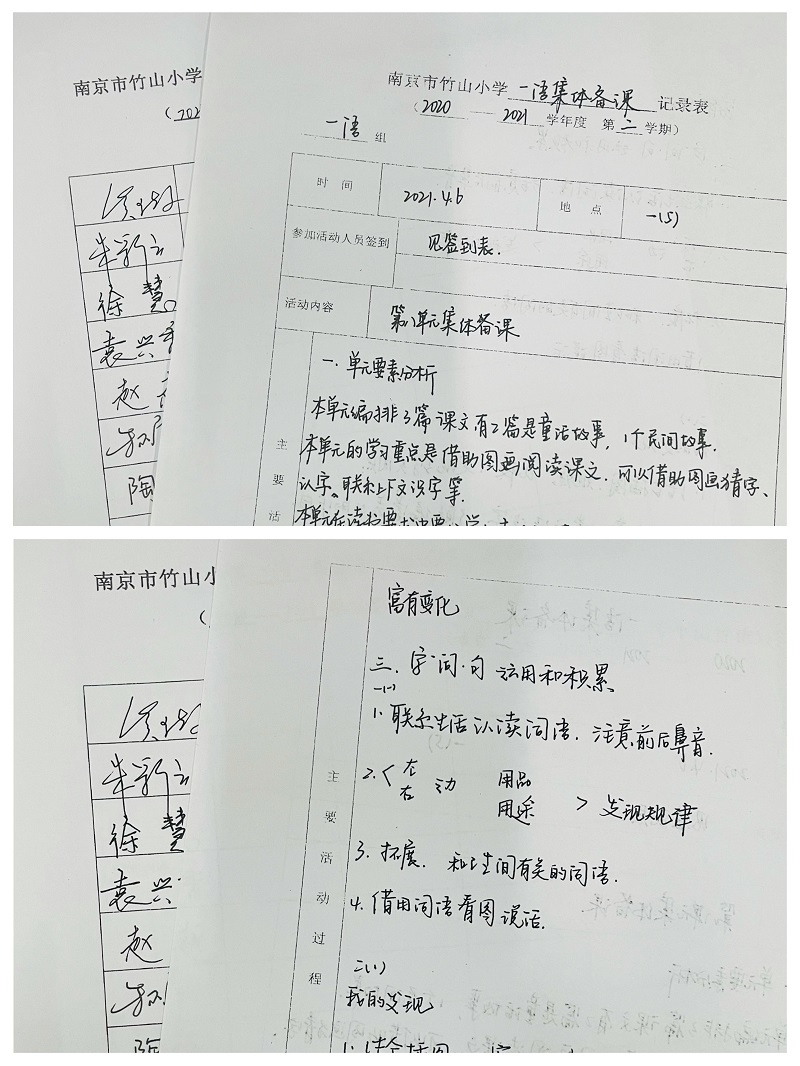 南京市竹山小学
（202
徐慧
袁兴
赵
陶
南京市竹山小学 一语集体备课 记录表
（2020 — 2021 学年度 第二学期）
一语 组
时 间 2021.4.6 地 点 一(5)
参加活动人员签到 见签到表.
活动内容 第八单元集体备课
一. 单元要素分析
本单元编排3篇课文,有2篇是童话故事, 1个民间故事.
主 本单元的学习重点是借助图画阅读课文. 可以借助图画猜字、
要 认字。联系上下文识字等.
活 本单元在读书要求
南京市竹山小
（
徐慧
袁兴
赵
陶
富有变化
三. 字·词·句 运用和积累
一(1)
1. 联系生活认读词语. 注意前后鼻音.
2. < 左 右 动 用品 用途 > 发现规律
3. 拓展. 和卫生间有关的词语.
4. 借用词语看图说话.
二(1)
我的发现
主要活动过程